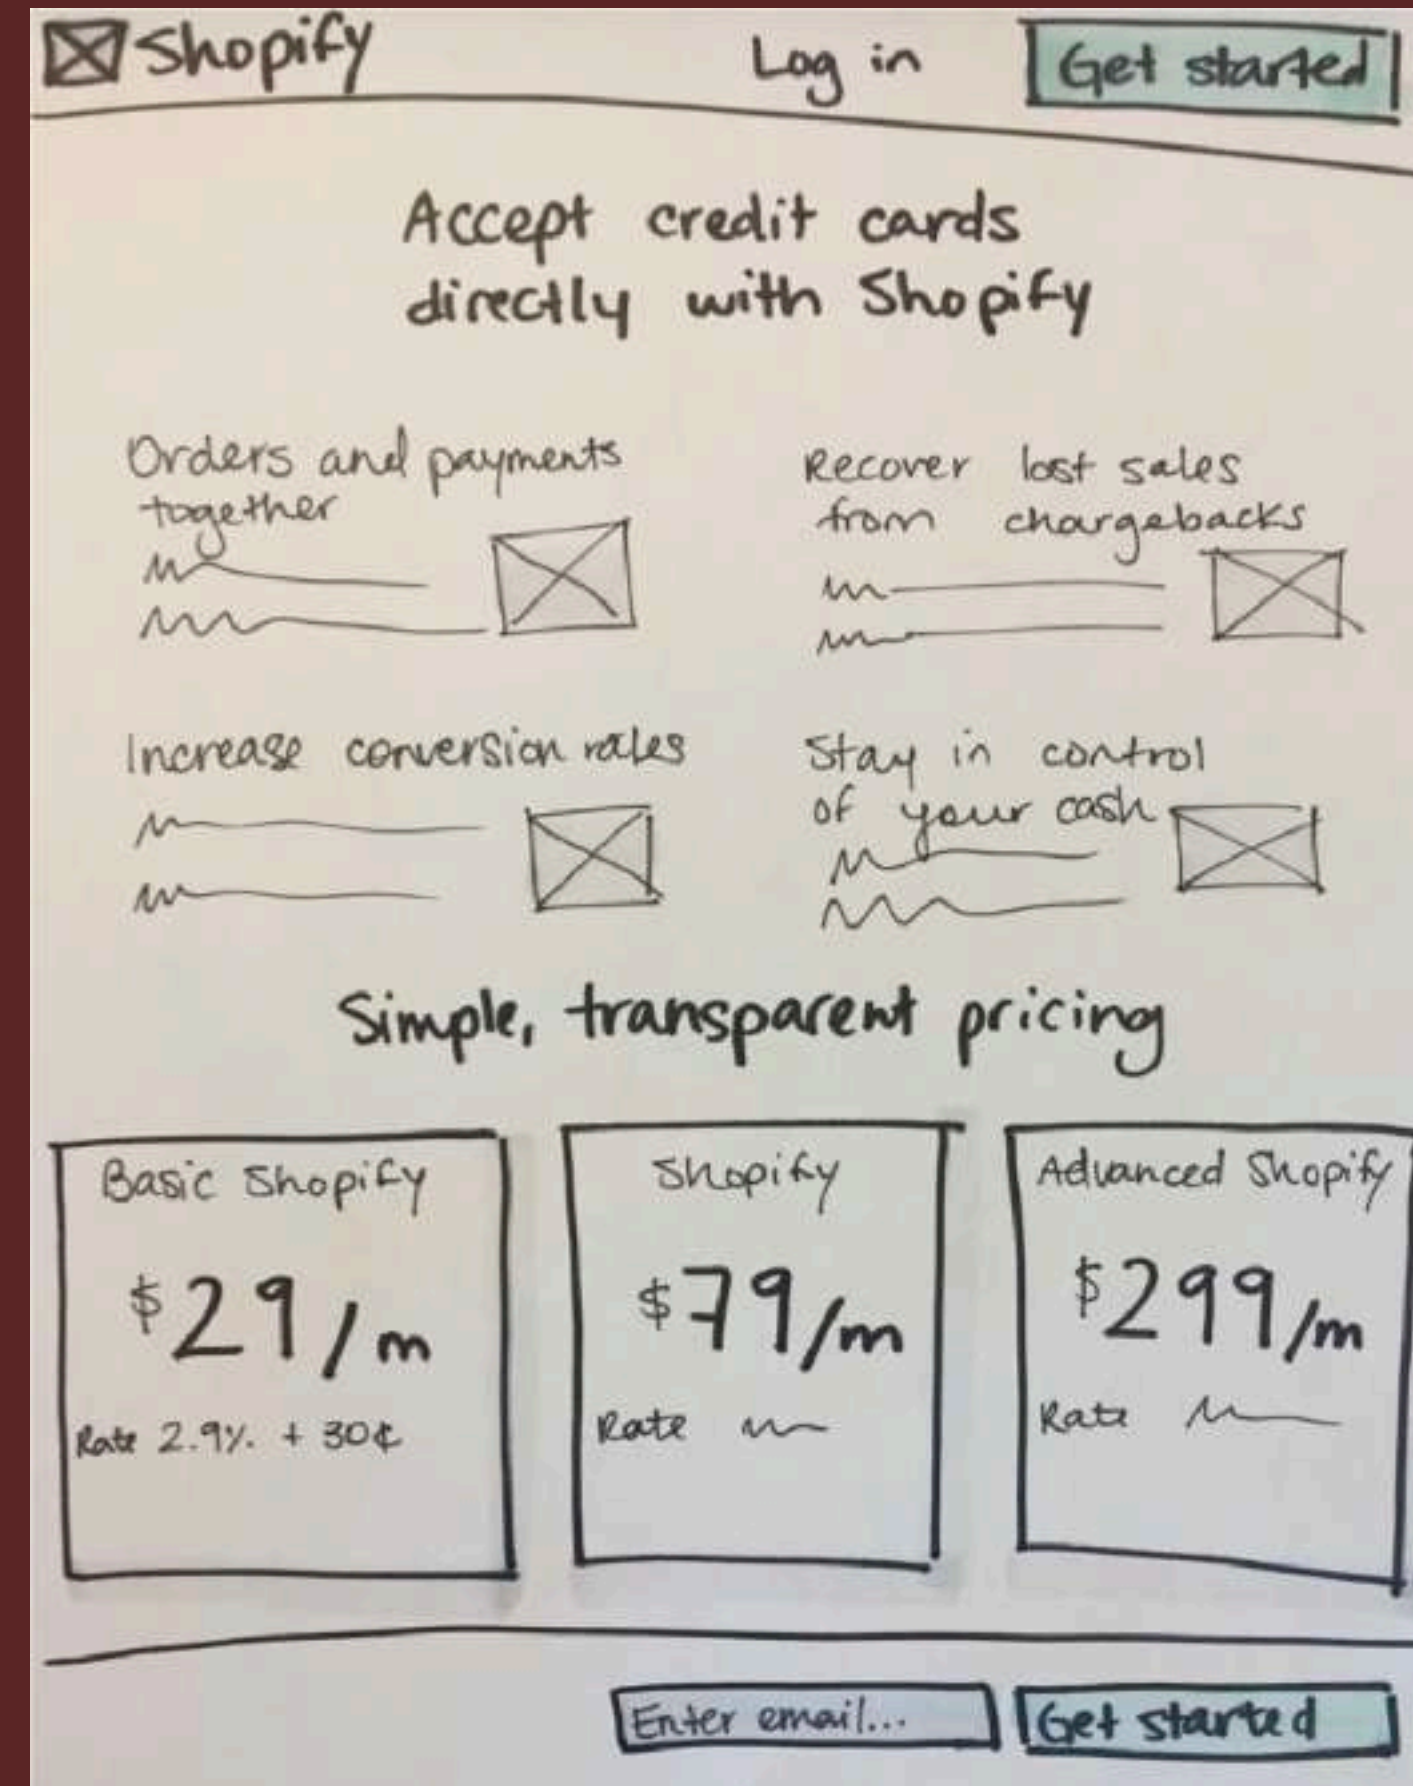 Shopify
Log in
Get started
Accept credit cards
directly with Shopify
Orders and payments
together
Recover lost sales
from chargebacks
Increase conversion rates
Stay in control
of your cash
Simple, transparent pricing
Basic Shopify
$29/m
Rate 2.9% + 30¢
Shopify
$79/m
Rate
Advanced Shopify
$299/m
Rate
Enter email...
Get started